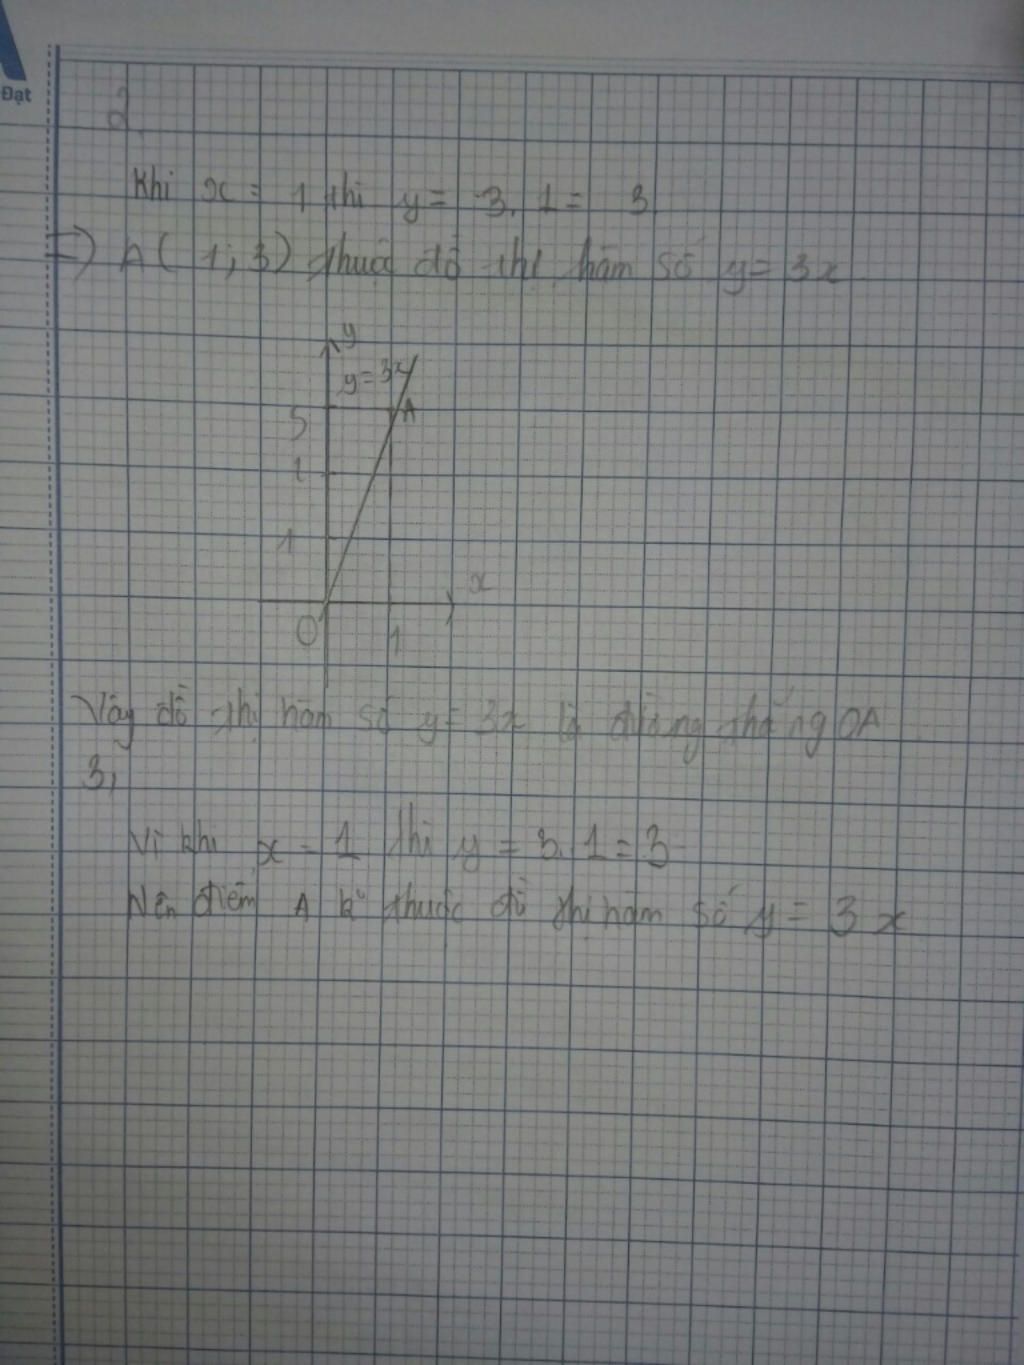 Đạt
2
Khi x = 1 thì y = 3.1 = 3
=> A(1;3) thuộc đồ thị hàm số y = 3x
y
y=3x
3
A
2
1
x
O
1
Vậy đồ thị hàm số y = 3x là đường thẳng OA
3,
Vì khi x = 1 thì y = 3.1 = 3
Nên điểm A k° thuộc đồ thị hàm số y = 3x